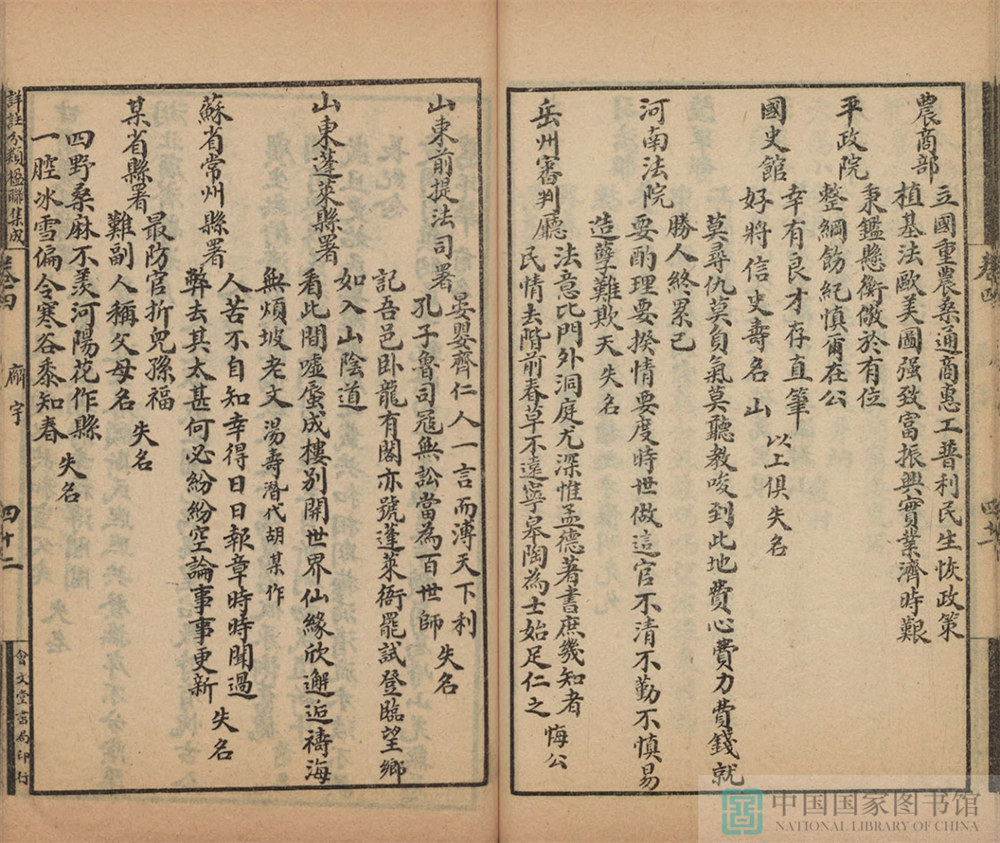 農商部
立國重農桑通商惠工普利民生恢政策
植基法歐美圖强致富振興實業濟時艱
平政院
秉鑑懸衡儆於有位
整綱飭紀慎爾在公
國史館
幸有良才存直筆
好將信史壽名山 以上俱失名
河南法院
莫尋仇莫負氣莫聽教唆到此地費心費力費錢就
勝人終累己
要酌理要揆情要度時世做這官不清不勤不慎易
造孽難欺天 失名
岳州審判廳
法意比門外洞庭尤深惟孟德著書庶幾知者
民情去階前春草不遠寧皋陶為士始足仁之 悔公
山東前提法司署
晏嬰齊仁人一言而溥天下利
孔子魯司寇無訟當為百世師 失名
山東蓬萊縣署
記吾邑卧龍有閣亦號蓬萊衙罷試登臨望鄉
如入山陰道
看此間噓蜃成樓別開世界仙緣欣邂逅禱海
無煩坡老文 湯壽潛代胡某作
蘇省常州縣署
人苦不自知幸得日日報章時時聞過
弊去其太甚何必紛紛空論事事更新 失名
某省縣署
最防官折兒孫福
難副人稱父母名 失名
四野桑麻不羨河陽花作縣
一腔冰雪偏令寒谷黍知春 失名
詳註分類楹聯集成
卷四
廨宇
四十二
會文堂書局印行
卷四
中国国家图书馆
NATIONAL LIBRARY OF CHINA